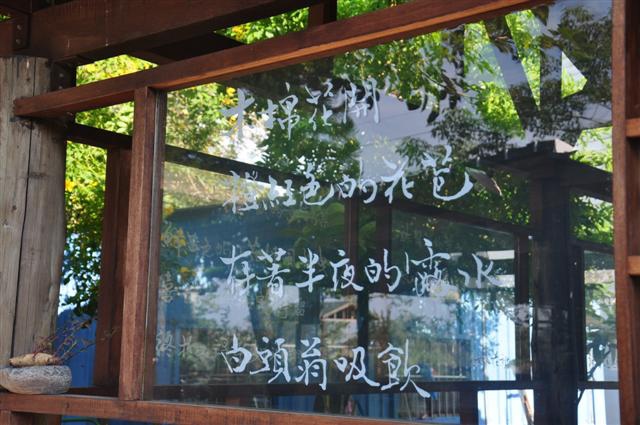 木棉花開
橙紅色的花苞
存著半夜的露水
白頭翁吸飲